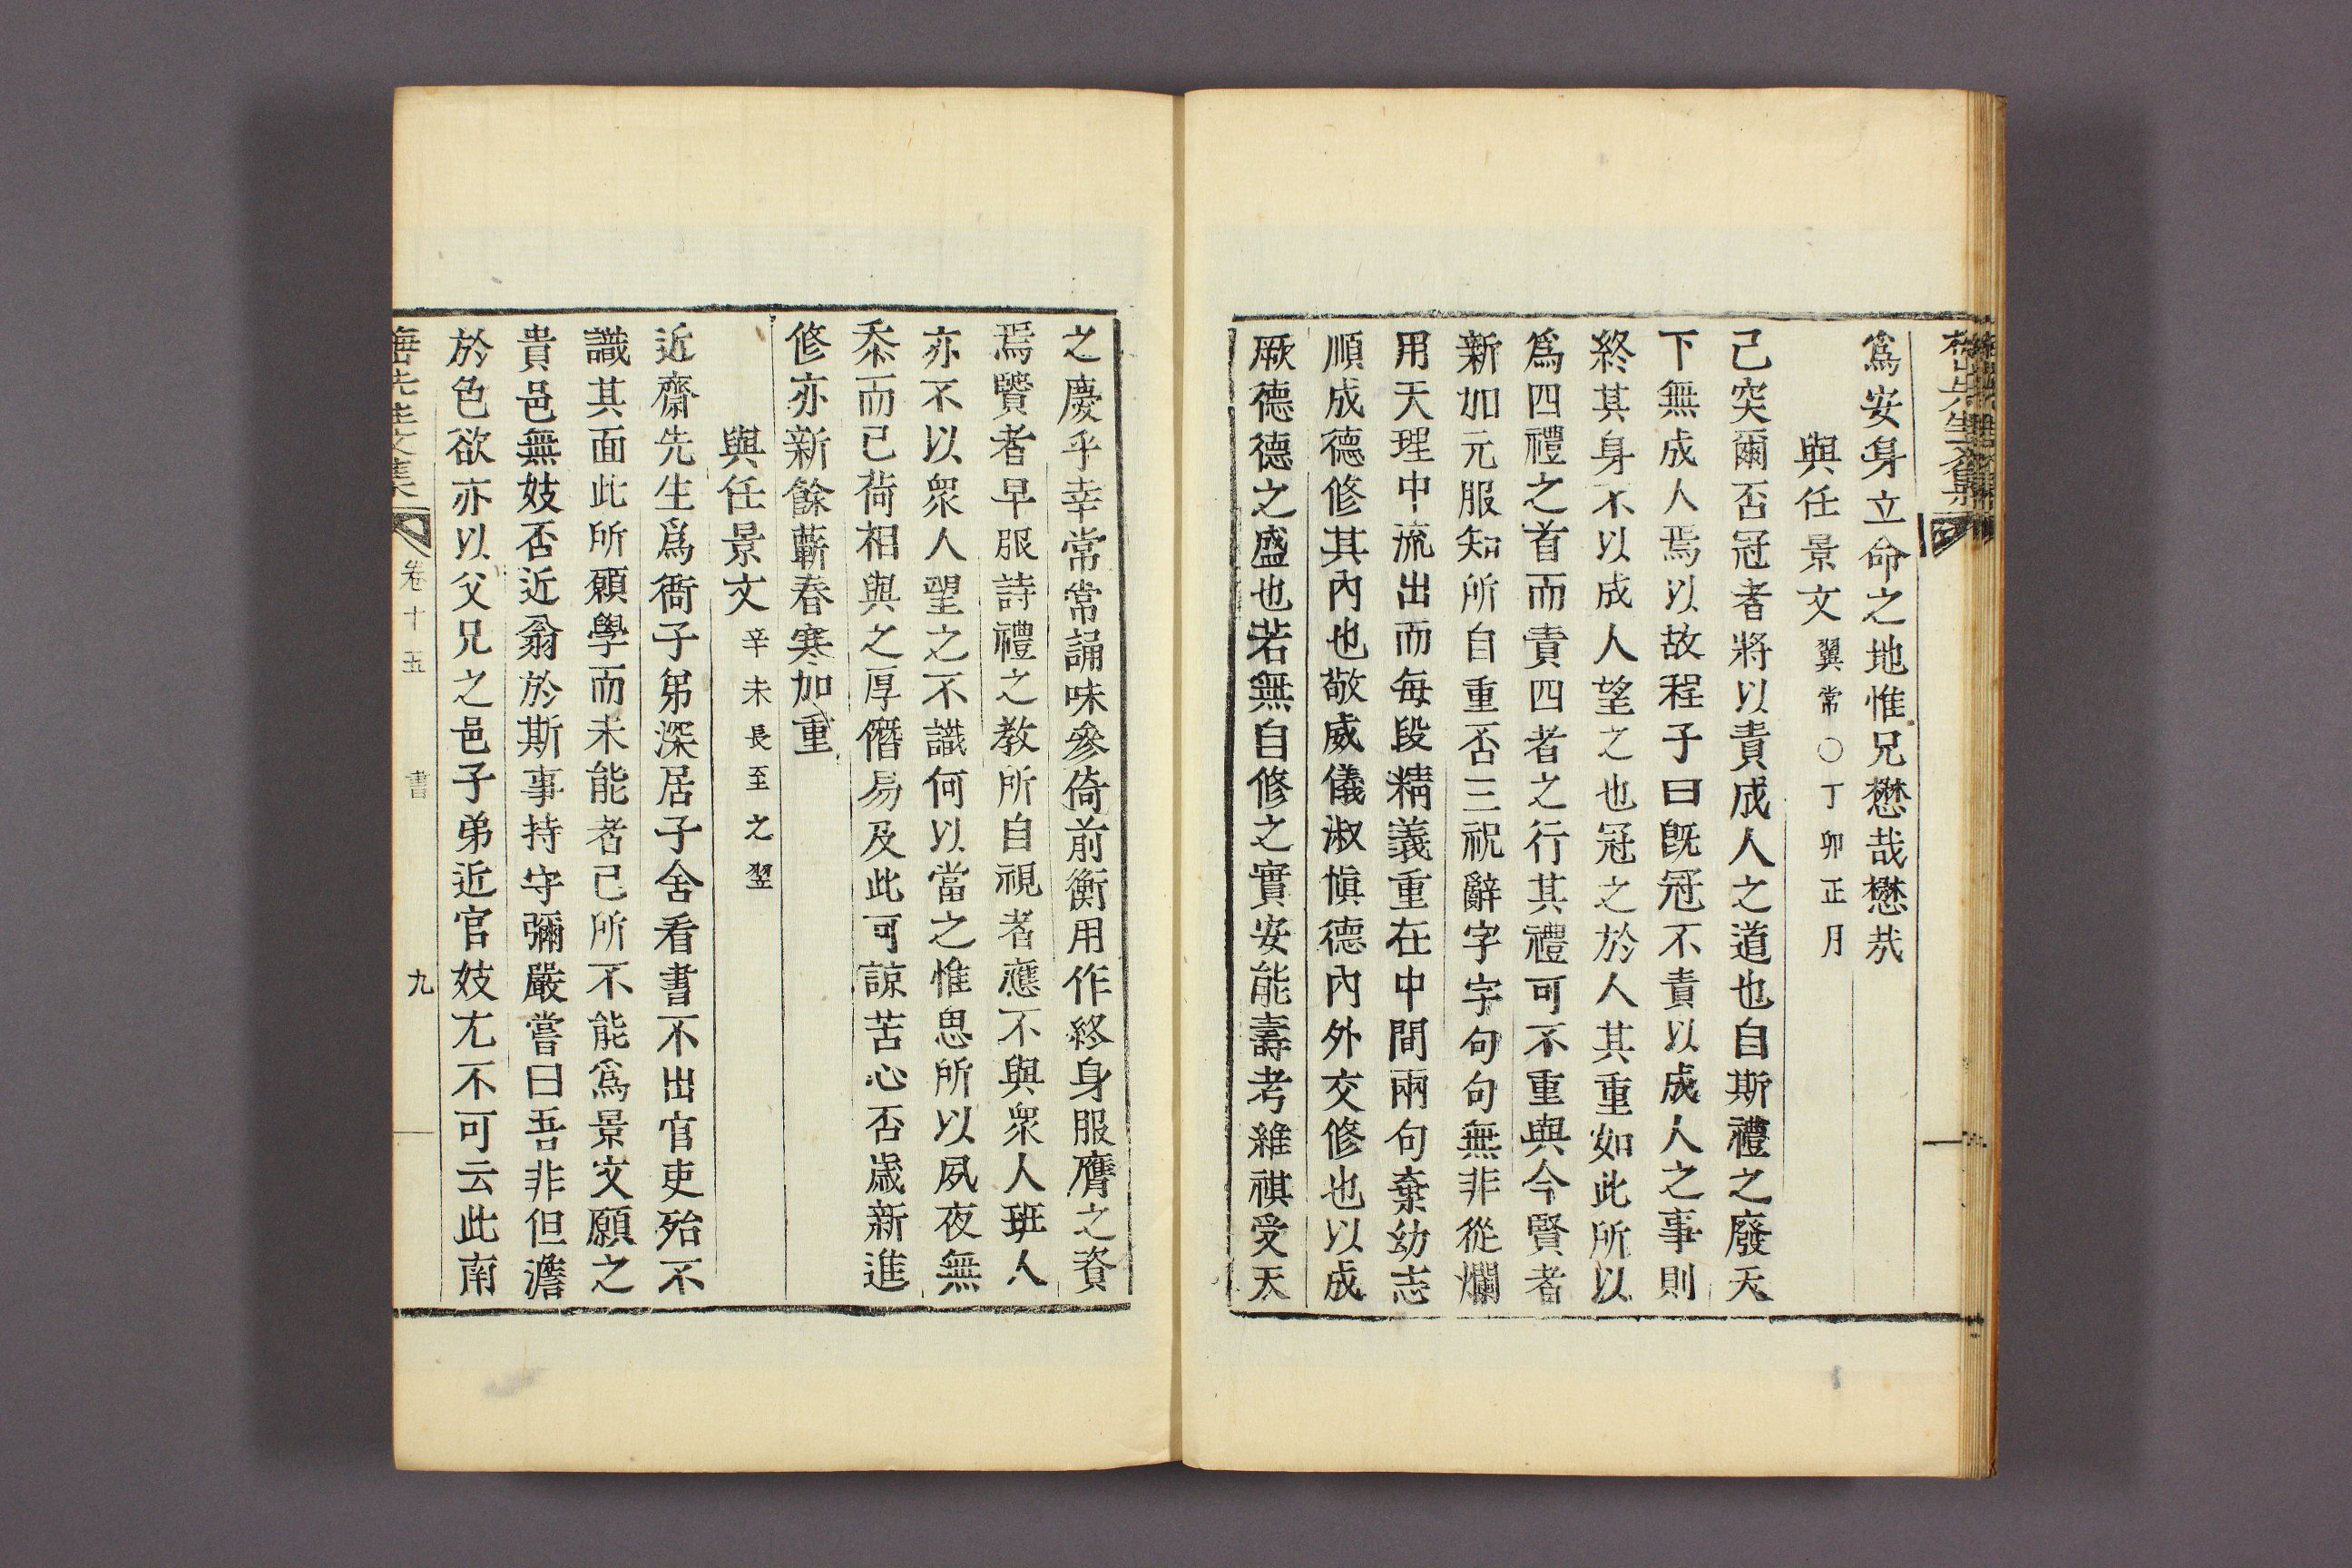 爲安身立命之地惟兄懋哉懋哉
與任景文翼常○丁卯正月
己突爾否冠者將以責成人之道也自斯禮之廢天
下無成人焉以故程子曰旣冠不責以成人之事則
終其身不以成人望之也冠之於人其重如此所以
爲四禮之首而責四者之行其禮可不重與今賢者
新加元服知所自重否三祝辭字字句句無非從爛
用天理中流出而每段精義重在中間兩句棄幼志
順成德修其內也敬威儀淑愼德內外交修也以成
厥德德之盛也若無自修之實安能壽考維祺受天
之慶乎幸常常誦味參倚前衡用作終身服膺之資
焉賢者早服詩禮之敎所自視者應不與衆人班人
亦不以衆人望之不識何以當之惟思所以夙夜無
忝而已荷相與之厚僭易及此可諒苦心否歲新進
修亦新餘蘄春寒加重
與任景文辛未長至之翌
近齋先生爲衙子弟深居子舍看書不出官吏殆不
識其面此所願學而未能者己所不能爲景文願之
貴邑無妓否近翁於斯事持守彌嚴嘗曰吾非但澹
於色欲亦以父兄之邑子弟近官妓尤不可云此南
卷十五
書
九